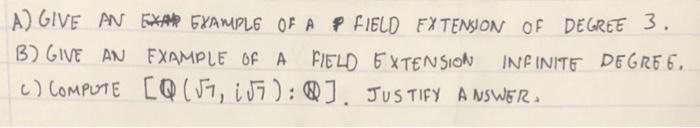 A) GIVE AN EXAMPLE OF A FIELD EXTENSION OF DEGREE 3.
B) GIVE AN EXAMPLE OF A FIELD EXTENSION INFINITE DEGREE.
C) COMPUTE [ℚ(√7, i√7) : ℚ]. JUSTIFY ANSWER.